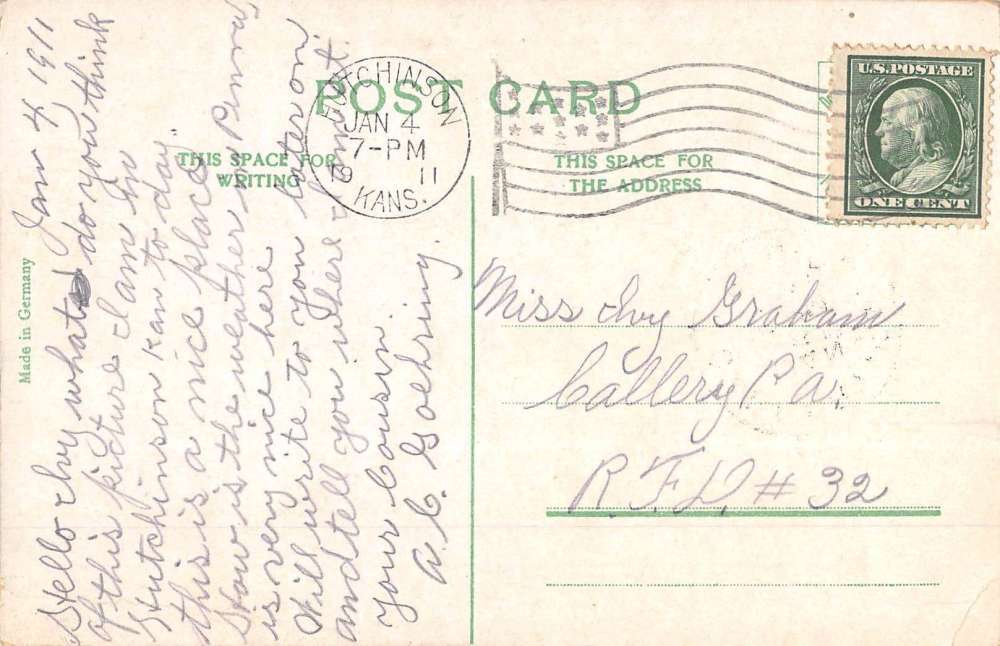 POST CARD
THIS SPACE FOR
WRITING
THIS SPACE FOR
THE ADDRESS
Made in Germany
HUTCHINSON
JAN 4
7-PM
19 11
KANS.
U.S. POSTAGE
ONE CENT
Jan 4, 1911
Hello Ivy what do you think
of this picture I am in
Hutchinson Kan to day
this is a nice place
How is the weather in Penna
is very nice here
Will write to you later on
and tell you where I am at.
Your Cousin
A. C. Goehring
Miss Ivy Graham
Callery Pa.
R. F. D. # 32